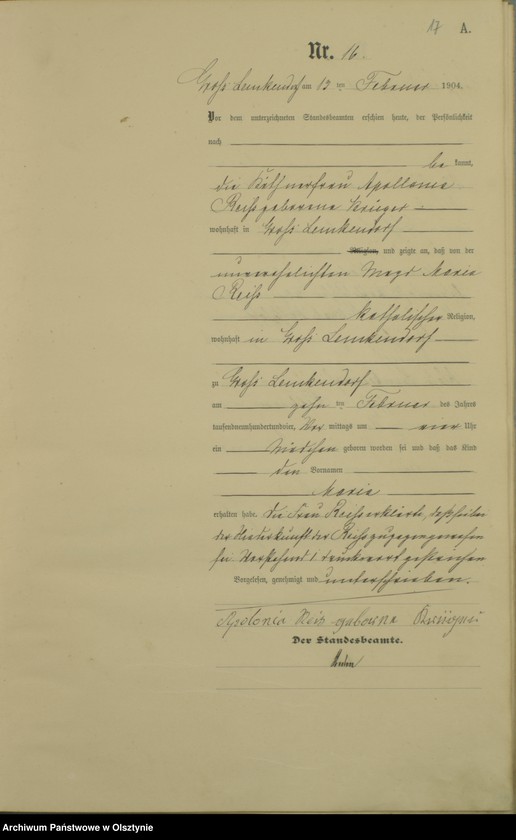 17 A.
Nr. 16.
Gross Lemkendorf am 12 ten Februar 1904.
Vor dem unterzeichneten Standesbeamten erschien heute, der Persönlichkeit
nach
be kannt,
die Käthnerfrau Apollonia
Reiss geborene Krieger
wohnhaft in Gross Lemkendorf
und zeigte an, daß von der
unverehelichten Magd Maria
Reiss
katholischer Religion,
wohnhaft in Gross Lemkendorf
zu Gross Lemkendorf
am zehn ten Februar des Jahres
tausendneunhundertundvier, Vor mittags um vier Uhr
ein Mädchen geboren worden sei und daß das Kind
den Vornamen
Maria
erhalten habe. Die Frau Reiss erklärte, daß sie bei
der Niederkunft der Reiss zugegen gewesen
sei Vorstehend 1 Druckwort gestrichen
Vorgelesen, genehmigt und unterschrieben.
Apolonia Reis geborne
Der Standesbeamte.
Archiwum Państwowe w Olsztynie